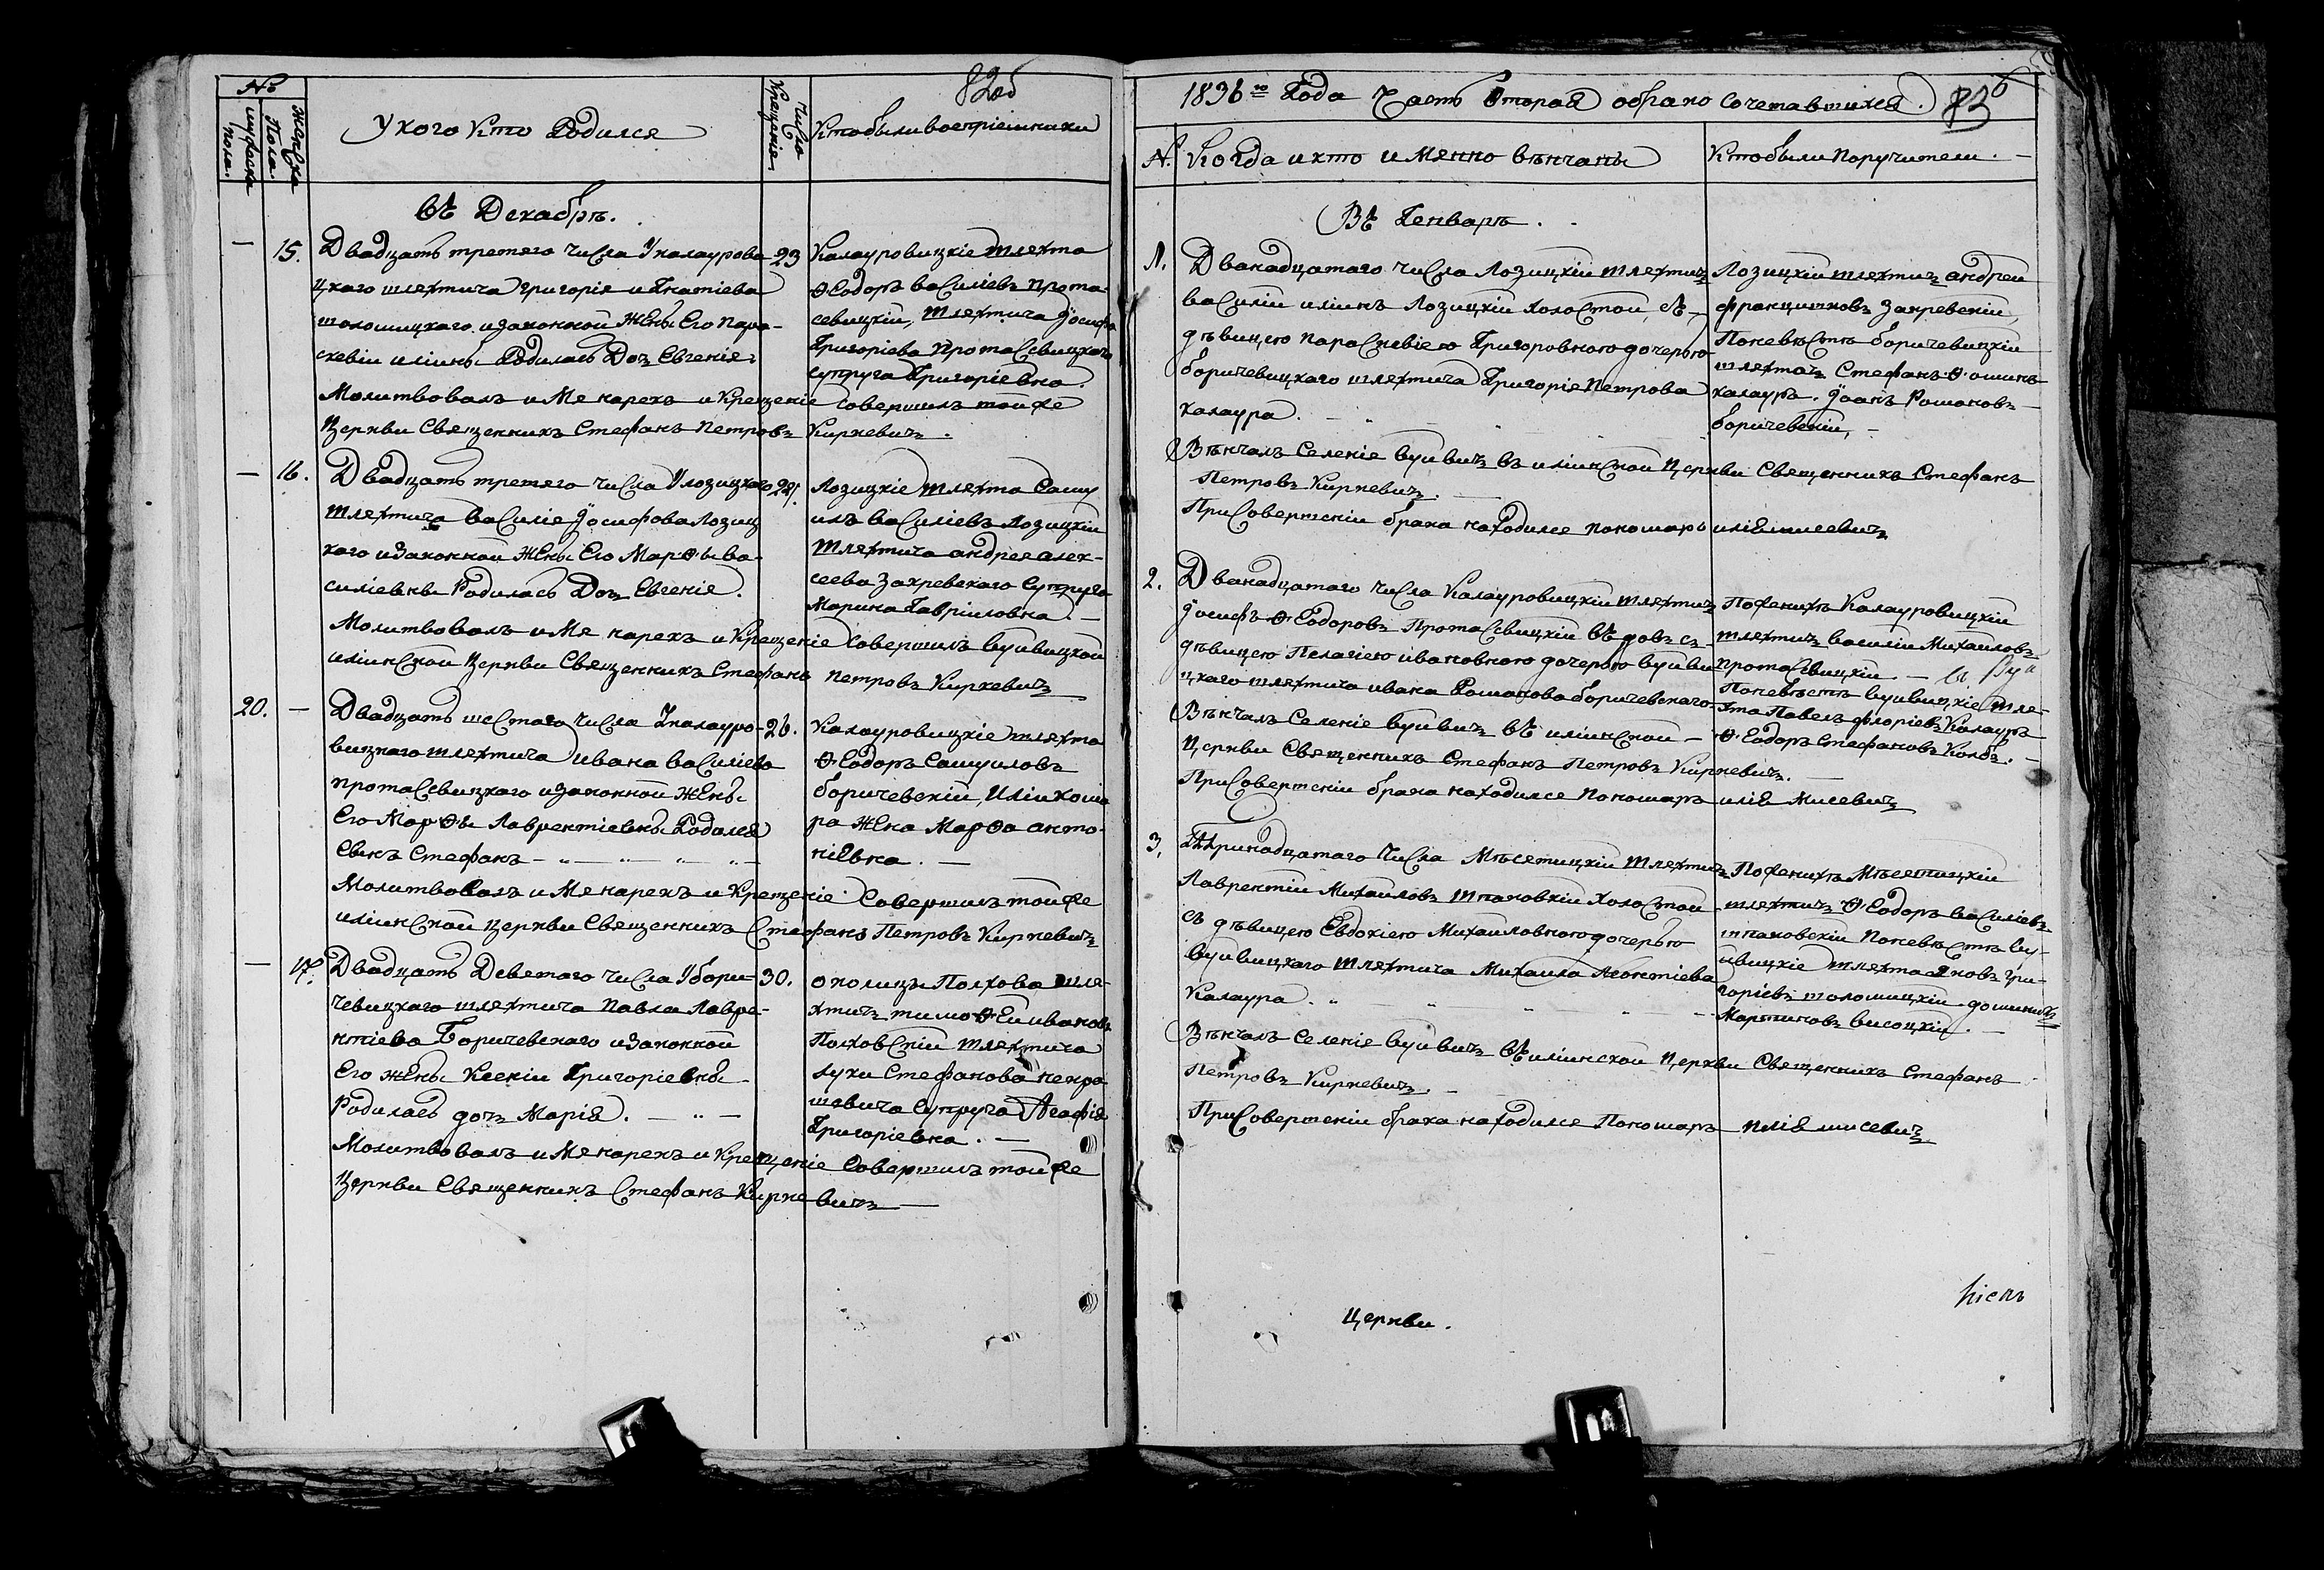 82об
№
мужеска пола.
Женска Пола.
У кого кто Родился
Число Крещения
Кто были восприемники
въ Декабрѣ.
15.
Двадцать третяго числа У калаурови-
цкаго шляхтича Григорія Игнатіева
толошицкаго и законной Жены Его Пара-
скевіи иліины Родилась Доч Евгенія
23
Калауровицкіе шляхта
Ѳеодоръ василіевъ прота-
севицкій, шляхтича Іосифа
Григоріева Протасевицкаго
супруга Григоріевна.
Молитвовалъ и Мя нарекъ и Крещеніе совершилъ той же
Церкви Священникъ Стефанъ Петровъ Киркевичъ.
16.
Двадцать третяго числа У лозицкаго
шляхтича василіе Іосифова Лозиц
каго и законной Жены Его Марѳы ва-
силіевны Родилась Доч Евгеніе.
Лозицкіе шляхта Саму
илъ василіевъ Лозицкій
шляхтича андрея алек-
сеева Закревскаго Супруга
Марина Гавріиловна.
Молитвовалъ и Мя нарекъ и Крещеніе совершилъ вуйвицкой
иліинской Церкви Священникъ Стефанъ Петровъ Киркевичъ
20.
Двадцать шестаго числа У калауро-
вицкаго шляхтича ивана василіева
протасевицкаго и законной Жены
Его Марѳы Лаврентіевны Родился
Сынъ Стефанъ
26.
Калауровицкіе шляхта
Ѳеодоръ Самуиловъ
боричевскій, Иліи кома
ра Жена Марѳа анто-
ніевна.
Молитвовалъ и Мя нарекъ и Крещеніе Совершилъ той же
иліинской Церкви Священникъ Стефанъ Петровъ Киркевичъ
17.
Двадцать Девятаго числа У бори-
чевицкаго шляхтича Павла Лавре-
нтіева Боричевскаго и законной
Его жены Ксеніи Григоріевны
Родилась доч Марія.
30.
околицы Полхова шля-
хтич тимоѳей ивановъ
Полховскій шляхтича
луки Стефанова некра
шевича Супруга Агафія
Григоріевна.
Молитвовалъ и Мя нарекъ и Крещеніе Совершилъ той же
Церкви Священникъ Стефанъ Киркевичъ
1836го Года Часть Вторая о брако сочетавшихся.
83
№
Когда и кто именно вѣнчаны
Кто были Поручители.
Въ Генварѣ.
1.
Дванадцатаго числа Лозицкій шляхтич
василій иліинъ Лозицкій холостой, съ
дѣвицею параскевіею Григоровною дочерью
боричевицкаго шляхтича Григоріе Петрова
калаура.
Лозицкій шляхтич андрей
францишковъ Закревскій,
По невѣстѣ боричевицкій
шляхтич Стефанъ Ѳоминъ
калауръ. Іоанъ Романовъ
боричевскій,
Вѣнчалъ Селеніе вуйвичъ въ иліинской Церкви Священникъ Стефанъ
Петровъ Киркевичъ.
При Совершеніи брака находился пономаръ иліе мисевичъ
2.
Дванадцатаго числа Калауровицкій шляхтич
Іосифъ Ѳеодоровъ Протасевицкій въдовъ съ
дѣвицею Пелагіею ивановною дочерью вуйви
цкаго шляхтича ивана Романова боричевскаго
По женихѣ Калауровицкій
шляхтич василій Михайловъ
протасевицкій.
По невѣстѣ вуйвицкіе шля-
хта Павелъ флоріевъ Калауръ
Ѳеодоръ Стефановъ Колбъ.
Вѣнчалъ Селеніе вуйвичъ въ иліинской
Церкви Священникъ Стефанъ Петровъ Киркевичъ.
При Совершеніи брака находился Пономаръ иліе Мисевичъ
3.
Тринадцатаго Числа Мѣсятицкій шляхтич
Лаврентій Михайловъ шпаковскій холостой
съ дѣвицею Евдокіею Михайловною дочерью
вуйвицкаго шляхтича Михаила Леонтіева
Калаура.
По женихѣ Мѣсятицкій
шляхтич Ѳеодоръ василіевъ
шпаковскій По невѣстѣ ву-
йвицкіе шляхта яковъ гри-
горіевъ толошицкій. доминикъ
Мартиновъ висоцкій.
Вѣнчалъ Селеніе вуйвичъ въ иліинской Церкви Священникъ Стефанъ
Петровъ Киркевичъ.
При Совершеніи брака находился Пономаръ иліе мисевичъ
Церкви.